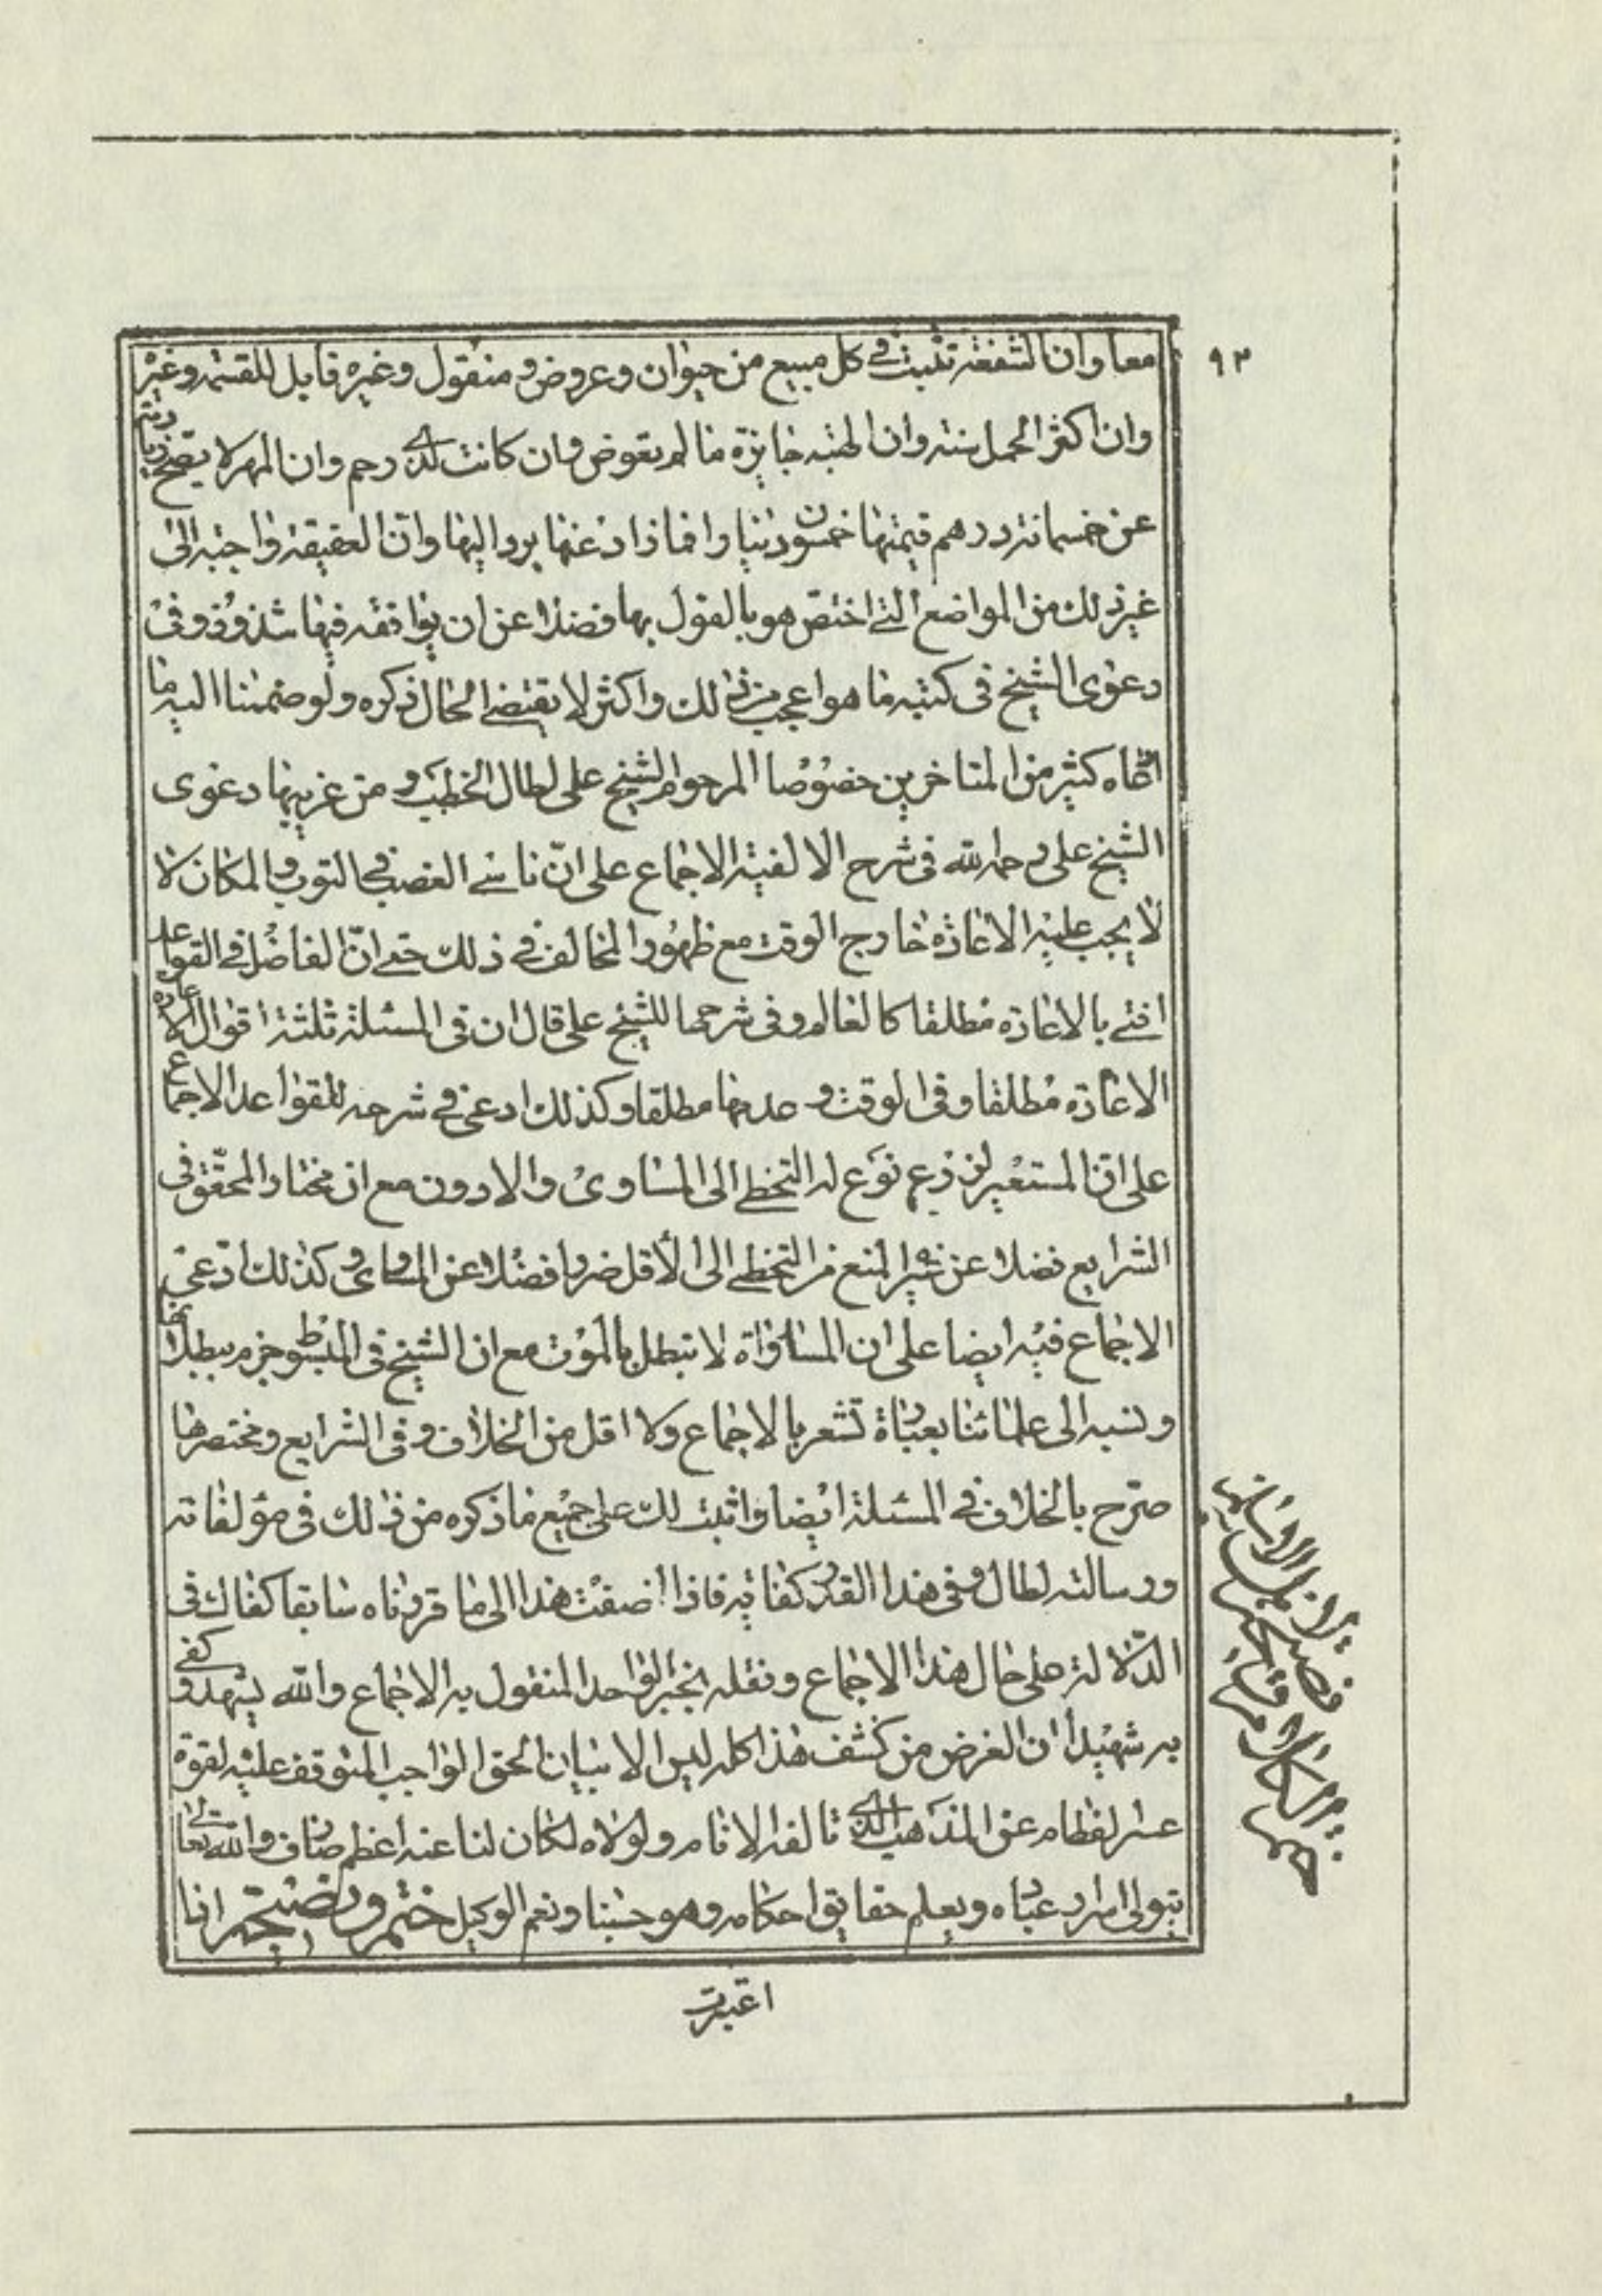 ٩٣
معا وان الشفعة تثبت فى كل مبيع من حيوان وعروض و منقول وغيره قابل للقسمة وغيره
وان اكثر الحمل سنة وان الهبة جايزة ما لم يعوض وان كانت لذى رحم وان المهر لا يصح زيادته
عن خمسمائة درهم قيمتها خمسون دينارا فما زاد عنها يرد اليها وان العقيقة واجبة الى
غير ذلك من المواضع التى اختص هو بالقول بها فضلا عن ان يوافقه فيها شذوذ وفى
دعوى الشيخ فى كتبه ما هو اعجب من ذلك واكثر لا يقتضى الحال ذكره ولو ضممنا اليه ما
ادعاه كثير من المتاخرين خصوصا المرحوم الشيخ على لطال الخطب ومن غريبها دعوى
الشيخ على رحمه الله فى شرح الالفية الاجماع على انّ ناسى الغصب فى الثوب والمكان لا
لا يجب عليه الاعادة خارج الوقت مع ظهور المخالف فى ذلك حتى انّ الفاضل فى القواعد
افتى بالاعادة مطلقا كالعالم وفى شرحها للشيخ على قال ان فى المسئلة ثلثة اقوال الاعادة
الاعادة مطلقا وفى الوقت وعدمها مطلقا وكذلك ادعى فى شرحه للقواعد الاجماع
على ان المستعير لزرع نوع له التخطى الى المساوى والادون مع ان مختار المحقق فى
الشرايع فضلا عن غيره المنع من التخطى الى الاقل ضررا فضلا عن المساوى وكذلك ادّعى
الاجماع فيه ايضا على ان المساواة لا تبطل بالموت مع ان الشيخ فى المبسوط جزم ببطلانها
ونسبه الى علمائنا بعبارة تشعر بالاجماع ولا اقل من الخلاف وفى الشرايع ومختصرها
صرّح بالخلاف فى المسئلة ايضا واثبت لك على جميع ما ذكره من ذلك فى مؤلفاته
ورسالته لطال وفى هذا القدر كفاية فاذا اضفت هذا الى ما قررناه سابقا كفاك فى
الدّلالة على حال هذا الاجماع ونقله بخبر الواحد المنقول به الاجماع والله يشهد وكفى
به شهيدا ان الغرض من كشف هذا كله ليس الا بيان الحق الواجب المتوقف عليه لقوة
عسر الفطام عن المذهب الذى تالفه الانام ولولاه لكان لنا عنه اعظم صارف والله تعالى
يتولى اسرار عباده ويعلم حقايق احكامه وهو حسبنا ونعم الوكيل ختم ونصيحة اذا
اعتبرت